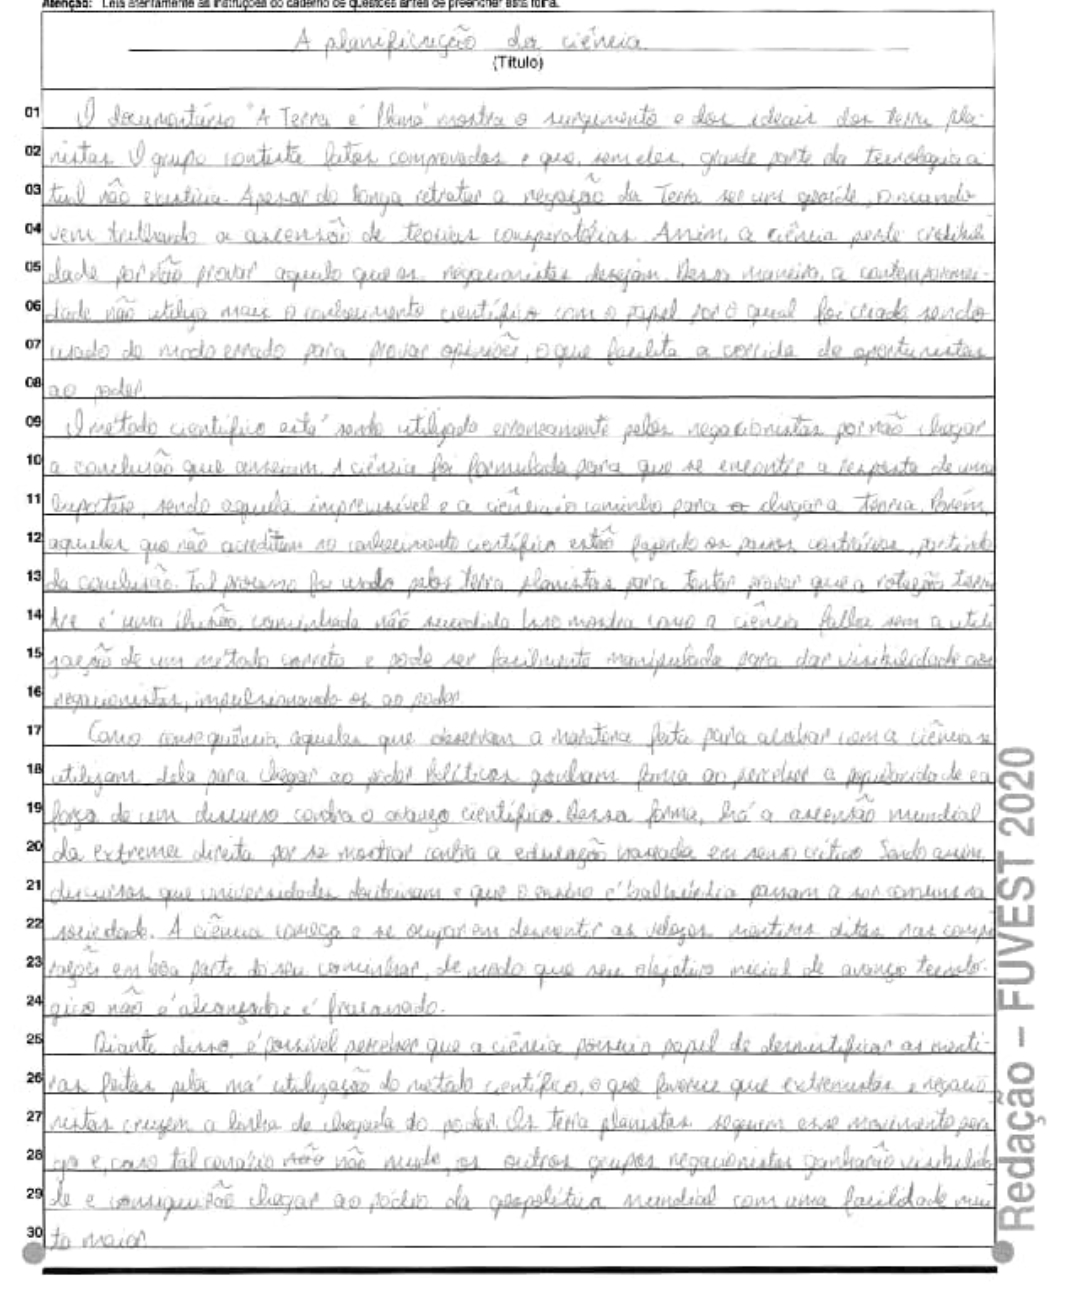 Atenção: Leia atentamente as instruções do caderno de questões antes de preencher esta folha.
A planificação da ciência
(Título)
01 O documentário "A Terra é Plana" mostra o surgimento e dos ideais dos terra pla-
02 nistas. O grupo contesta fatos comprovados e que, sem eles, grande parte da tecnologia a
03 tual não existiria. Apesar do longa retratar a negação da Terra ser um geoide, o mundo
04 vem trilhando a ascensão de teorias conspiratórias. Assim, a ciência perde credibili
05 dade por não provar aquilo que os negacionistas desejam. Dessa maneira, a contemporanei-
06 dade não utiliza mais o conhecimento científico com o papel por o qual foi criado sendo
07 usado de modo errado para provar opiniões, o que facilita a corrida de oportunistas
08 ao poder.
09 O método científico está sendo utilizado erroneamente pelos negacionistas por não chegar
10 a conclusão que anseiam. A ciência foi formulada para que se encontre a resposta de uma
11 hipótese, sendo aquela imprevisível e a ciência o caminho para chegar a teoria. Porém,
12 aqueles que não acreditam no conhecimento científico estão fazendo os passos contrários, partindo
13 da conclusão. Tal processo foi usado pelos terra planistas para tentar provar que a rotação terres
14 tre é uma ilusão, caminhada não sucedida. Isso mostra como a ciência falha sem a utili
15 zação de um método correto e pode ser facilmente manipulada para dar visibilidade aos
16 negacionistas, impulsionando os ao poder.
17 Como consequência, aqueles que observam a maratona feita para acabar com a ciência se
18 utilizam dela para chegar ao poder. Políticos ganham fama ao perceber a popularidade e a
19 força de um discurso contra o avanço científico. Dessa forma, há a ascensão mundial
20 da extrema direita por se mostrar contra a educação baseada em senso crítico. Sendo assim,
21 discursos que universidades doutrinam e que o ensino é balbúrdia passam a ser comuns na
22 sociedade. A ciência começa a se ocupar em desmentir as velozes mentiras ditas nas compe
23 tições em boa parte do seu caminhar, de modo que seu objetivo inicial de avanço tecnoló-
24 gico não é alcançado e é fracassado.
25 Diante disso, é possível perceber que a ciência possui o papel de desmistificar as menti-
26 ras feitas pela má utilização do método científico, o que favorece que extremistas e negacio
27 nistas cruzem a linha de chegada do poder. Os terra planistas seguem esse movimento
28 e, caso tal cenário não mude, os outros grupos negacionistas ganharão visibilida
29 de e conseguirão chegar ao pódio da geopolítica mundial com uma facilidade mui
30 to maior.
Redação – FUVEST 2020